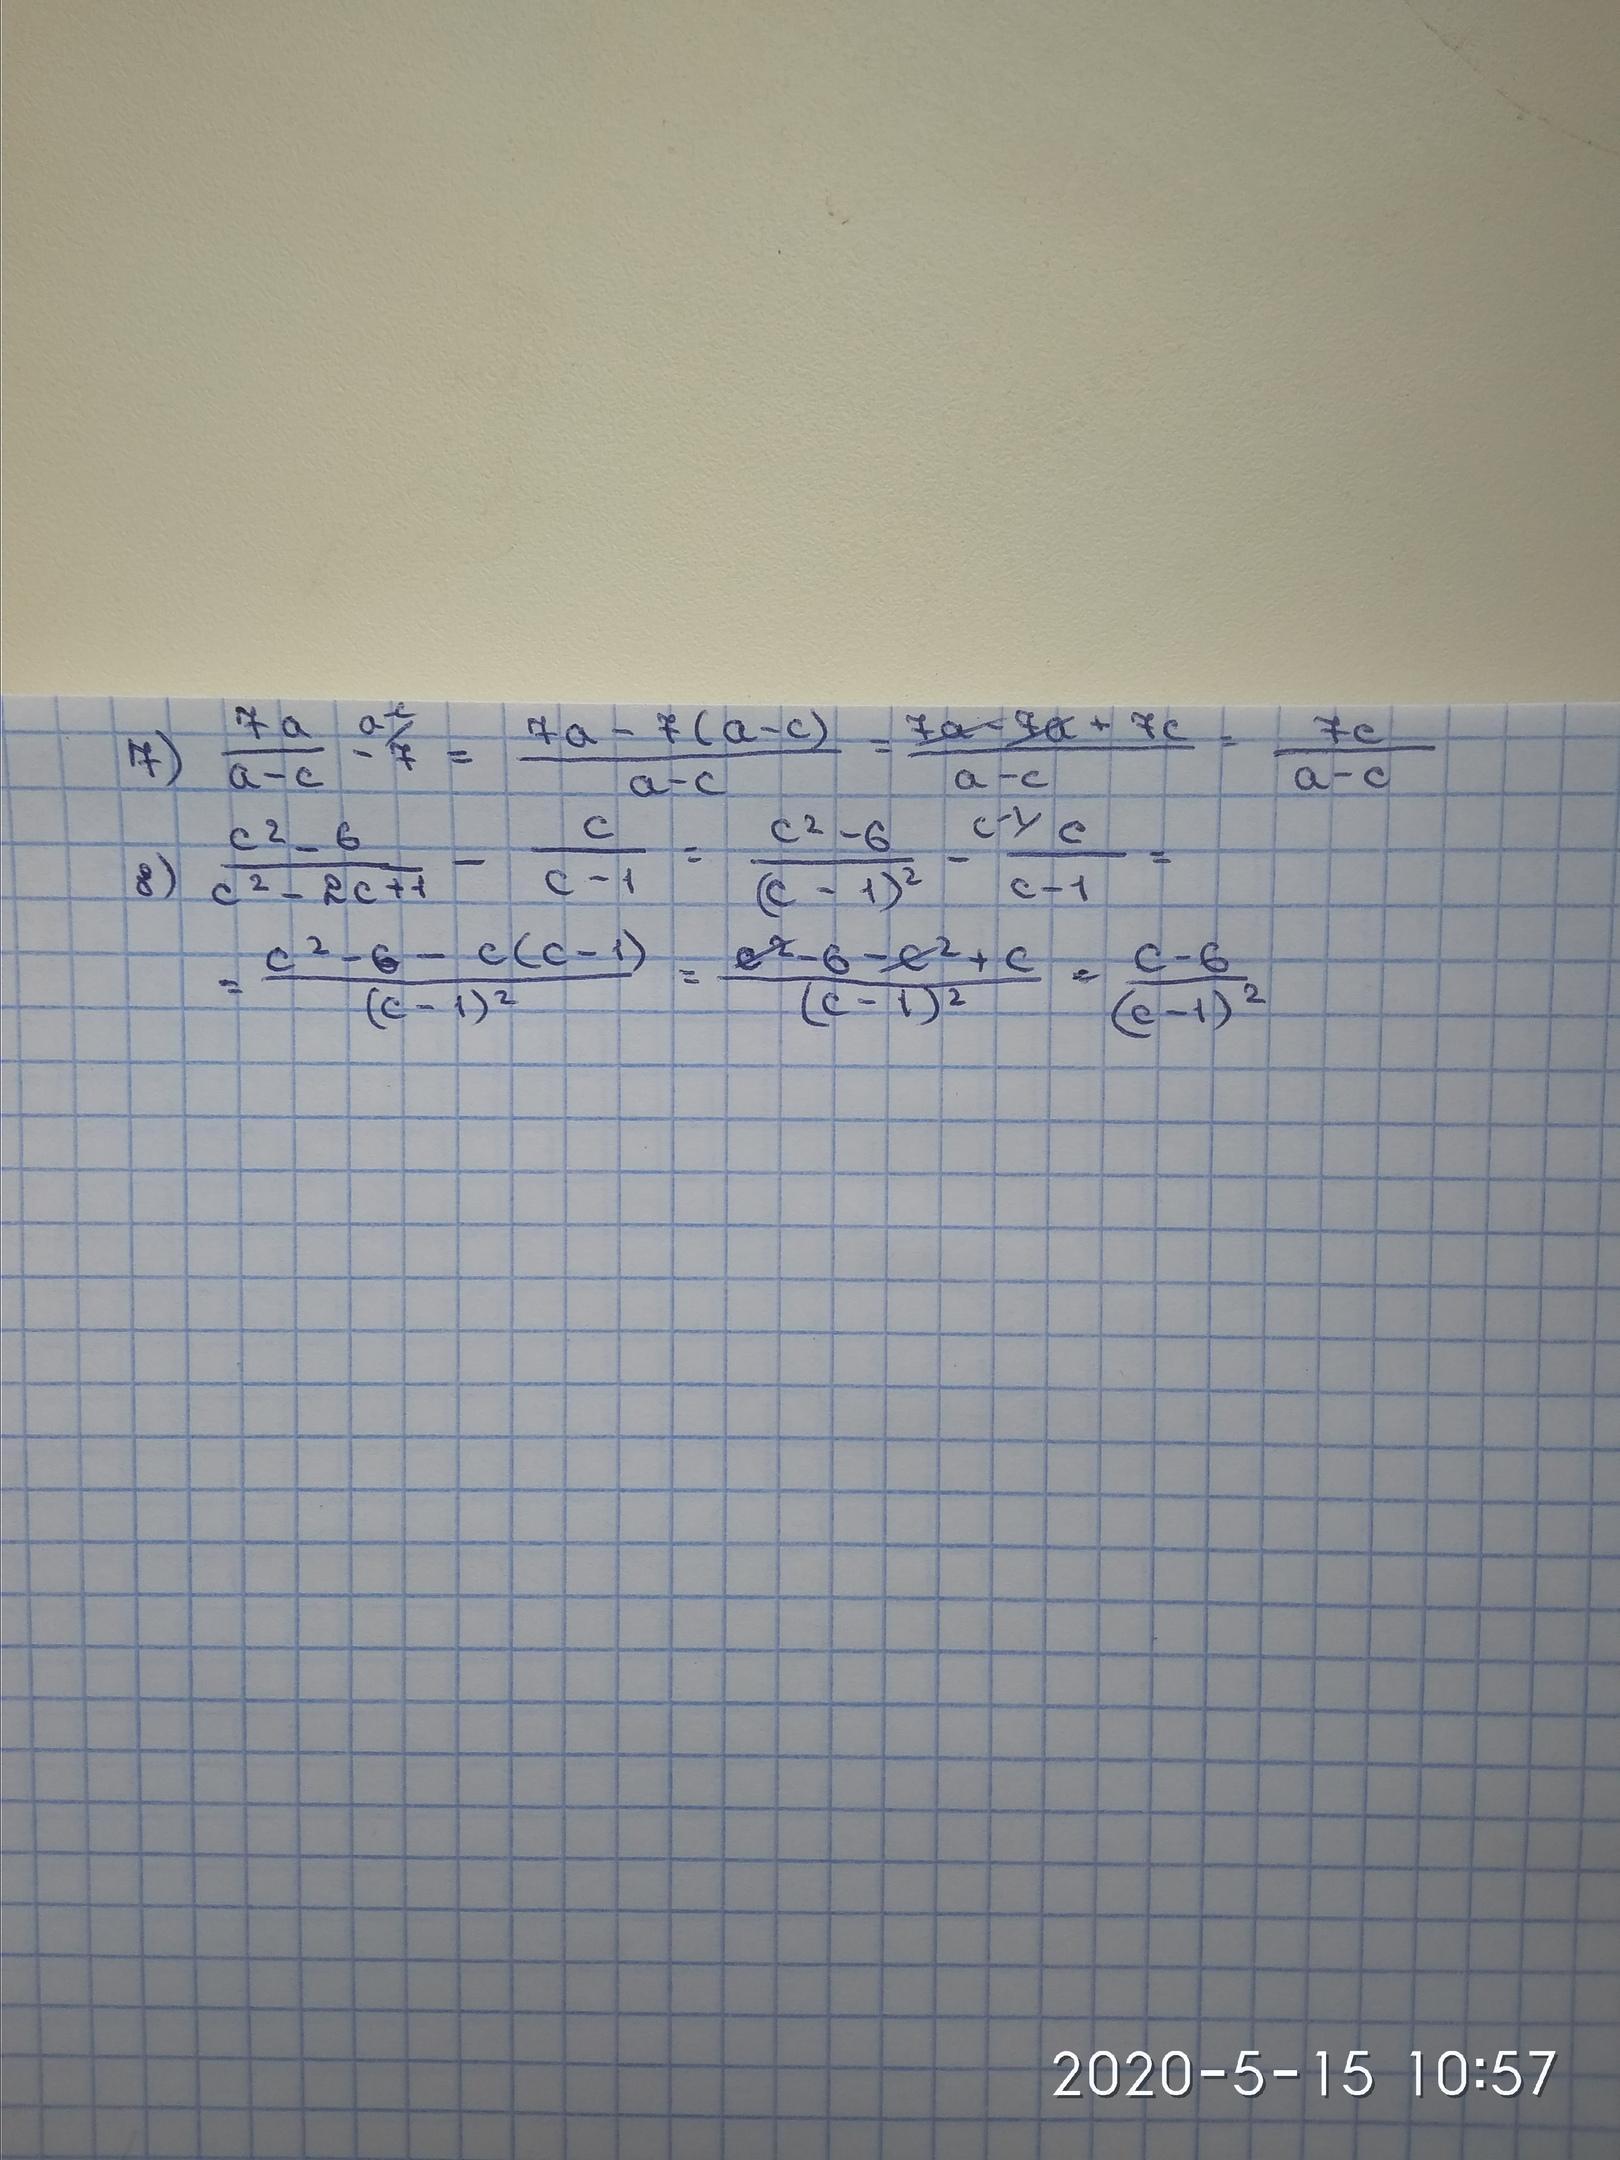 7) \frac{7a}{a-c} - 7^{/a-c} = \frac{7a-7(a-c)}{a-c} = \frac{7a-7a+7c}{a-c} = \frac{7c}{a-c}
8) \frac{c^2-6}{c^2-2c+1} - \frac{c}{c-1} = \frac{c^2-6}{(c-1)^2} - ^{c-1/}\frac{c}{c-1} =
= \frac{c^2-6-c(c-1)}{(c-1)^2} = \frac{c^2-6-c^2+c}{(c-1)^2} = \frac{c-6}{(c-1)^2}
2020-5-15 10:57